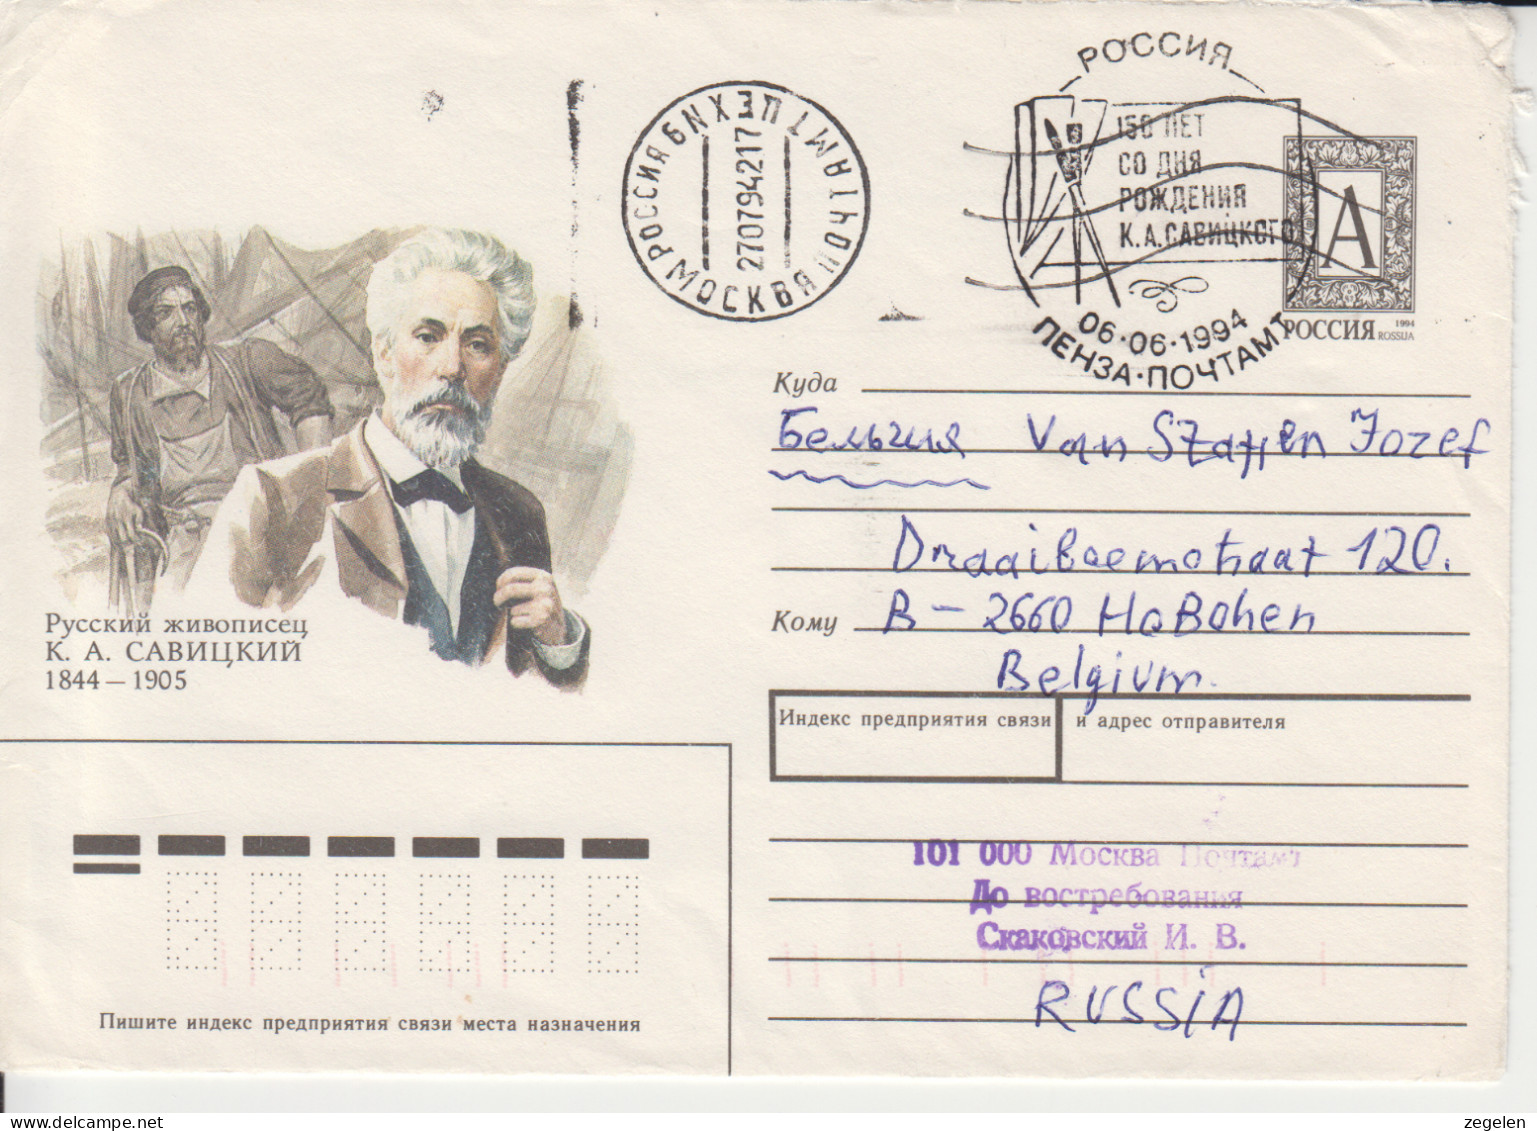 РОССИЯ
150 ЛЕТ
СО ДНЯ
РОЖДЕНИЯ
К.А.САВИЦКОГО
06·06·1994
ПЕНЗА·ПОЧТАМТ
РОССИЯ
МОСКВА
ПОЧТАМТ
270794217
А
1994
РОССИЯ ROSSIJA
Русский живописец
К. А. САВИЦКИЙ
1844 — 1905
Куда
Бельгия Van Jozef
120.
Кому B - 2660 HoBohen
Belgium.
Индекс предприятия связи и адрес отправителя
101 000 Москва Почтамт
До востребования
Скаковский И. В.
RUSSIA
Пишите индекс предприятия связи места назначения
zegelen